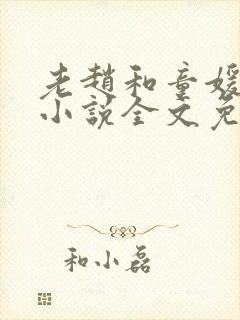 老赵和童媛
小说全文免
和小磊